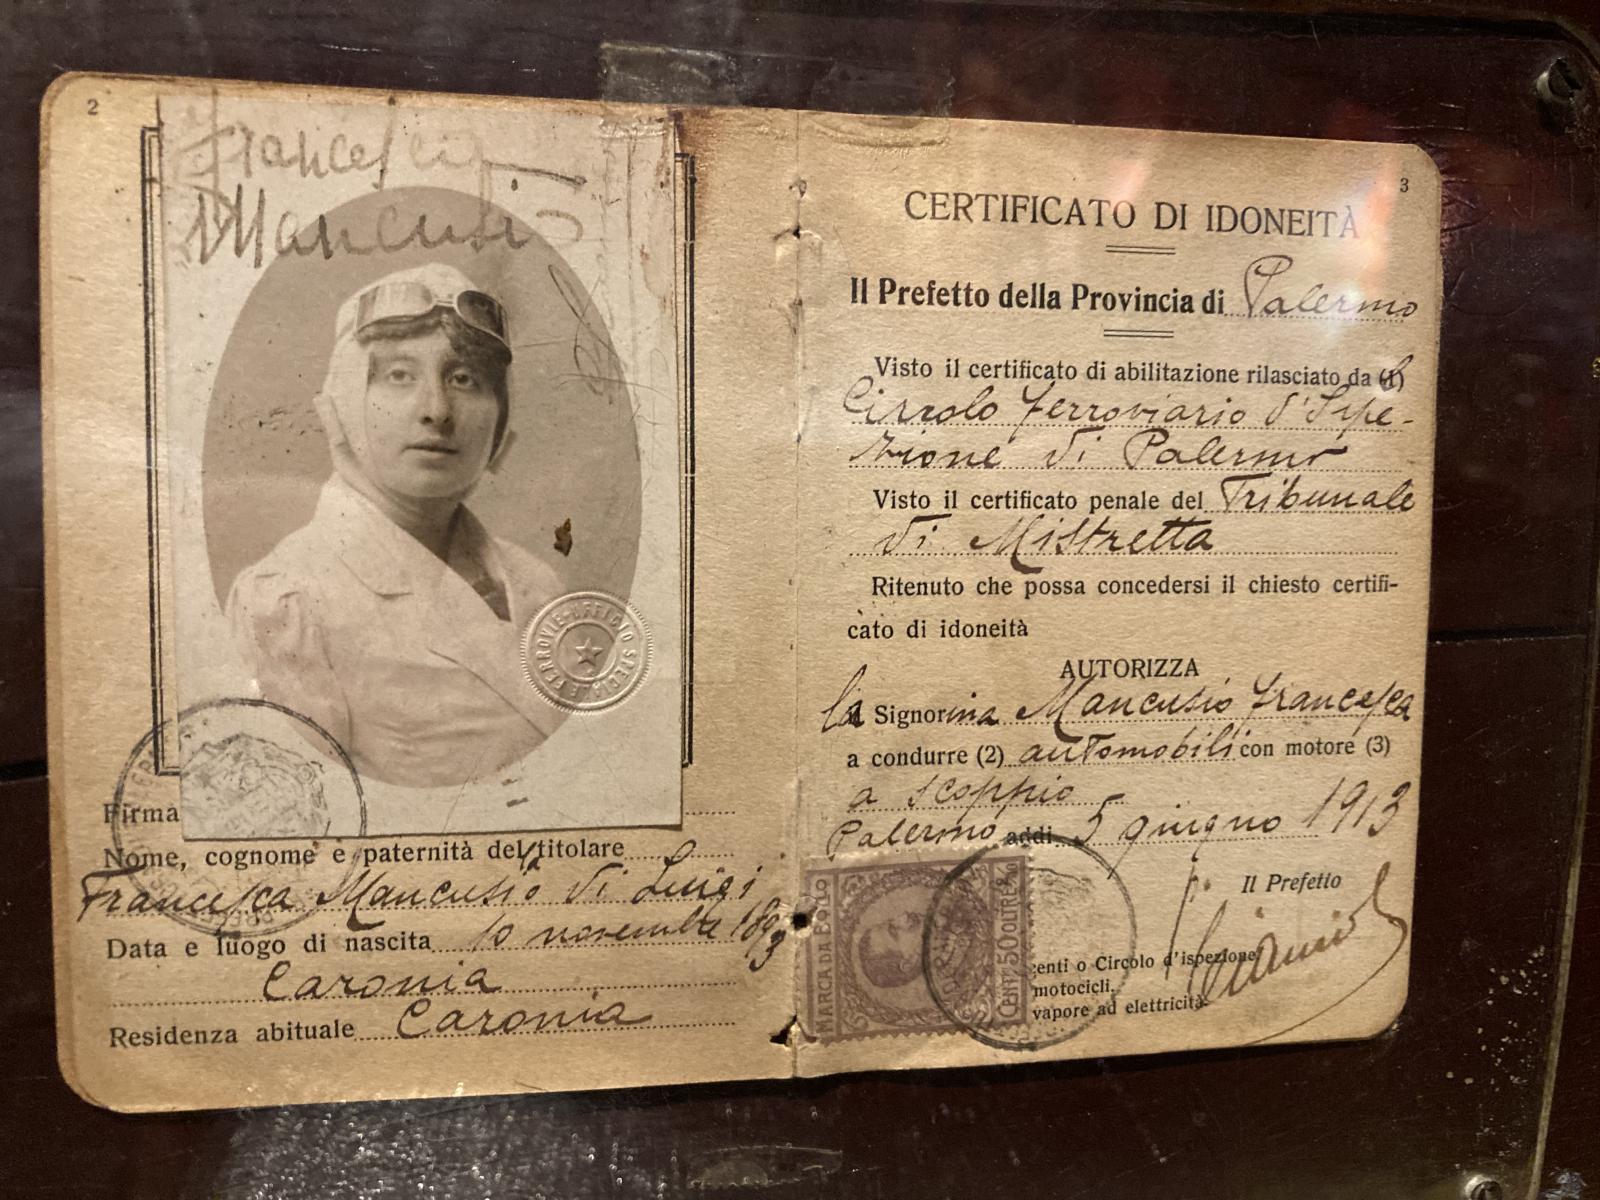 2
Francesca
Mancusio
FERROVIE-UFFICIO SPECIALE
Firma
Nome, cognome e paternità del titolare
Francesca Mancusio di Luigi
Data e luogo di nascita 10 novembre 1893
Caronia
Residenza abituale Caronia
3
CERTIFICATO DI IDONEITÀ
Il Prefetto della Provincia di Palermo
Visto il certificato di abilitazione rilasciato da (1)
Circolo ferroviario d'Ispe-
zione di Palermo
Visto il certificato penale del Tribunale
di Mistretta
Ritenuto che possa concedersi il chiesto certifi-
cato di idoneità
AUTORIZZA
la Signorina Mancusio Francesca
a condurre (2) automobili con motore (3)
a scoppio
Palermo addì 5 giugno 1913
Il Prefetto
MARCA DA BOLLO
CENT. 50 OLTRE
enti o Circolo d'ispezione
motocicli.
vapore ad elettricità